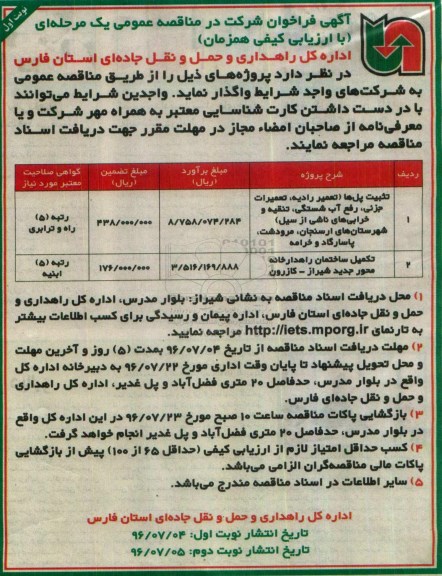 نوبت اول
آگهی فراخوان شرکت در مناقصه عمومی یک مرحله‌ای
(با ارزیابی کیفی همزمان)
اداره کل راهداری و حمل و نقل جاده‌ای استان فارس
در نظر دارد پروژه‌های ذیل را از طریق مناقصه عمومی
به شرکت‌های واجد شرایط واگذار نماید. واجدین شرایط می‌توانند
با در دست داشتن کارت شناسایی معتبر به همراه مهر شرکت و یا
معرفی‌نامه از صاحبان امضاء مجاز در مهلت مقرر جهت دریافت اسناد
مناقصه مراجعه نمایند.
ردیف شرح پروژه مبلغ برآورد (ریال) مبلغ تضمین (ریال) گواهی صلاحیت معتبر مورد نیاز
۱ تثبیت پل‌ها (تعمیر رادیه، تعمیرات جزئی، رفع آب شستگی، تنقیه و خرابی‌های ناشی از سیل) شهرستان‌های ارسنجان، مرودشت، پاسارگاد و خرامه ۸/۷۵۸/۰۷۴/۴۸۴ ۴۳۸/۰۰۰/۰۰۰ رتبه (۵) راه و ترابری
۲ تکمیل ساختمان راهدارخانه محور جدید شیراز – کازرون ۳/۵۱۶/۱۶۹/۸۸۸ ۱۷۶/۰۰۰/۰۰۰ رتبه (۵) ابنیه
۱) محل دریافت اسناد مناقصه به نشانی شیراز: بلوار مدرس، اداره کل راهداری و
حمل و نقل جاده‌ای استان فارس، اداره پیمان و رسیدگی برای کسب اطلاعات بیشتر
به تارنمای http://iets.mporg.ir مراجعه نمایید.
۲) مهلت دریافت اسناد مناقصه از تاریخ ۹۶/۰۷/۰۴ بمدت (۵) روز و آخرین مهلت
و محل تحویل پیشنهاد تا پایان وقت اداری مورخ ۹۶/۰۷/۲۲ به دبیرخانه اداره کل
واقع در بلوار مدرس، حدفاصل ۲۰ متری فضل‌آباد و پل غدیر، اداره کل راهداری
و حمل و نقل جاده‌ای فارس.
۳) بازگشایی پاکات مناقصه ساعت ۱۰ صبح مورخ ۹۶/۰۷/۲۳ در این اداره کل واقع
در بلوار مدرس، حدفاصل ۲۰ متری فضل‌آباد و پل غدیر انجام خواهد گرفت.
۴) کسب حداقل امتیاز لازم از ارزیابی کیفی (حداقل ۶۵ از ۱۰۰) پیش از بازگشایی
پاکات مالی مناقصه‌گران الزامی می‌باشد.
۵) سایر اطلاعات در اسناد مناقصه مندرج می‌باشد.
اداره کل راهداری و حمل و نقل جاده‌ای استان فارس
تاریخ انتشار نوبت اول: ۹۶/۰۷/۰۴
تاریخ انتشار نوبت دوم: ۹۶/۰۷/۰۵